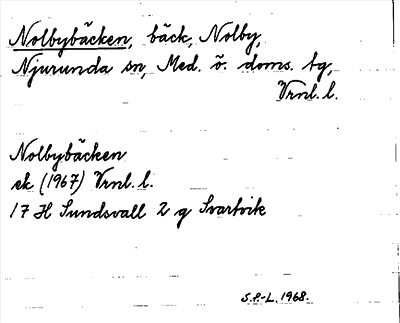 Nolbybäcken, bäck, Nolby,
Njurunda sn, Med. ö. doms. tg,
Vrnl. l.
Nolbybäcken
ek (1967) Vrnl. l.
17 H Sundsvall 2 g Svartvik
S.P.-L. 1968.